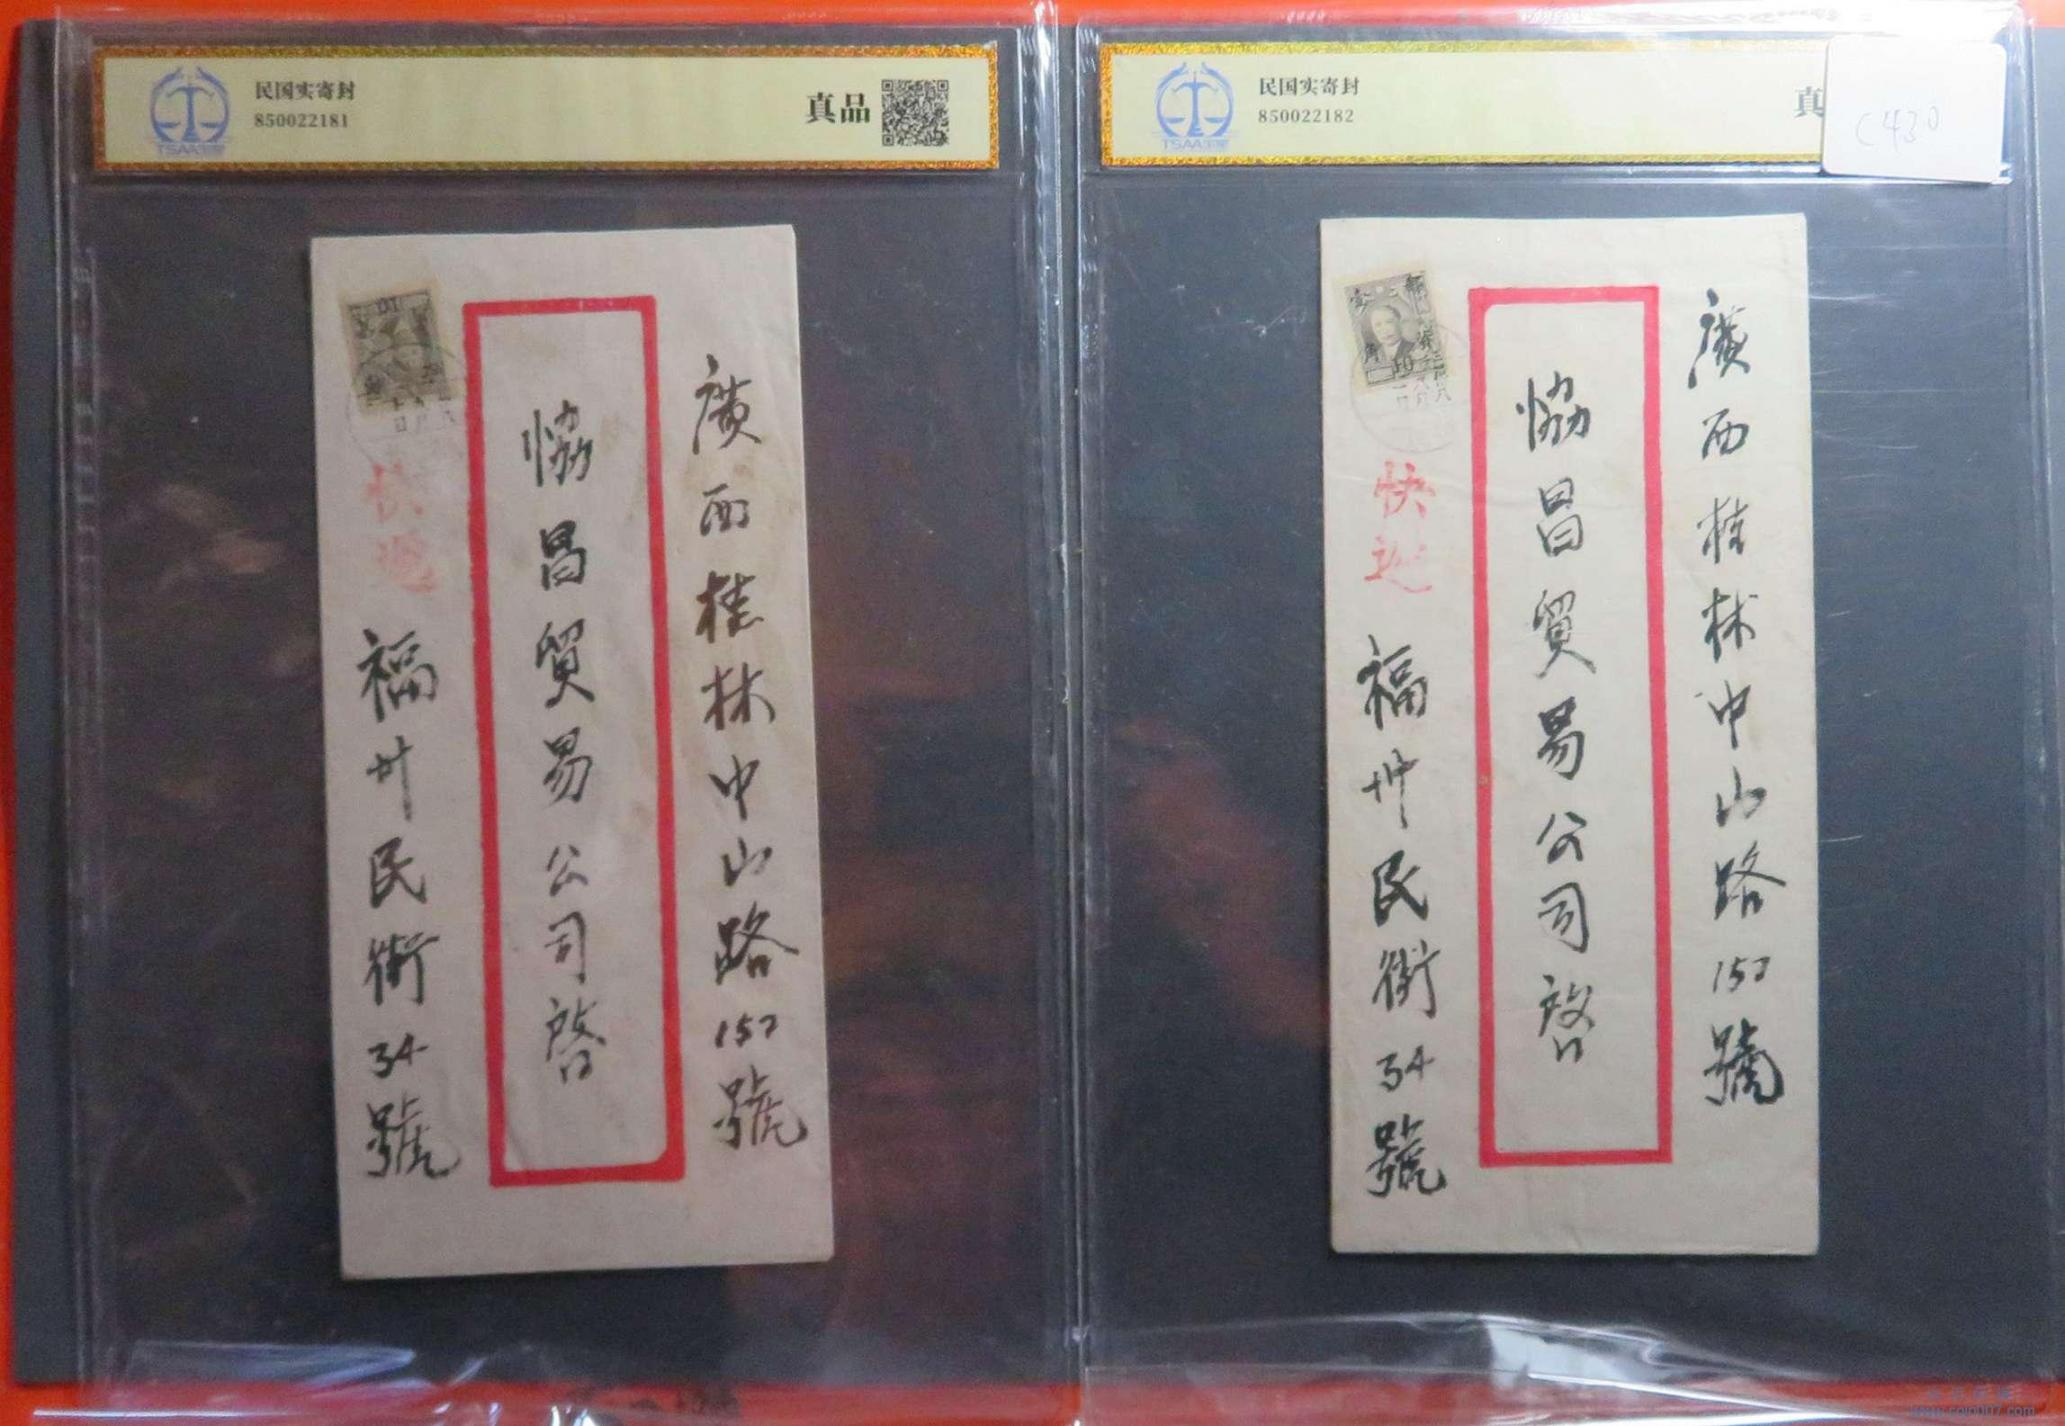 民国实寄封
850022181
真品
TSAA
廣西桂林中山路157號
協昌貿易公司啓
快遞
福州民街34號
民国实寄封
850022182
真
C430
TSAA
廣西桂林中山路157號
協昌貿易公司啓
快遞
福州民街34號
www.coin007.com